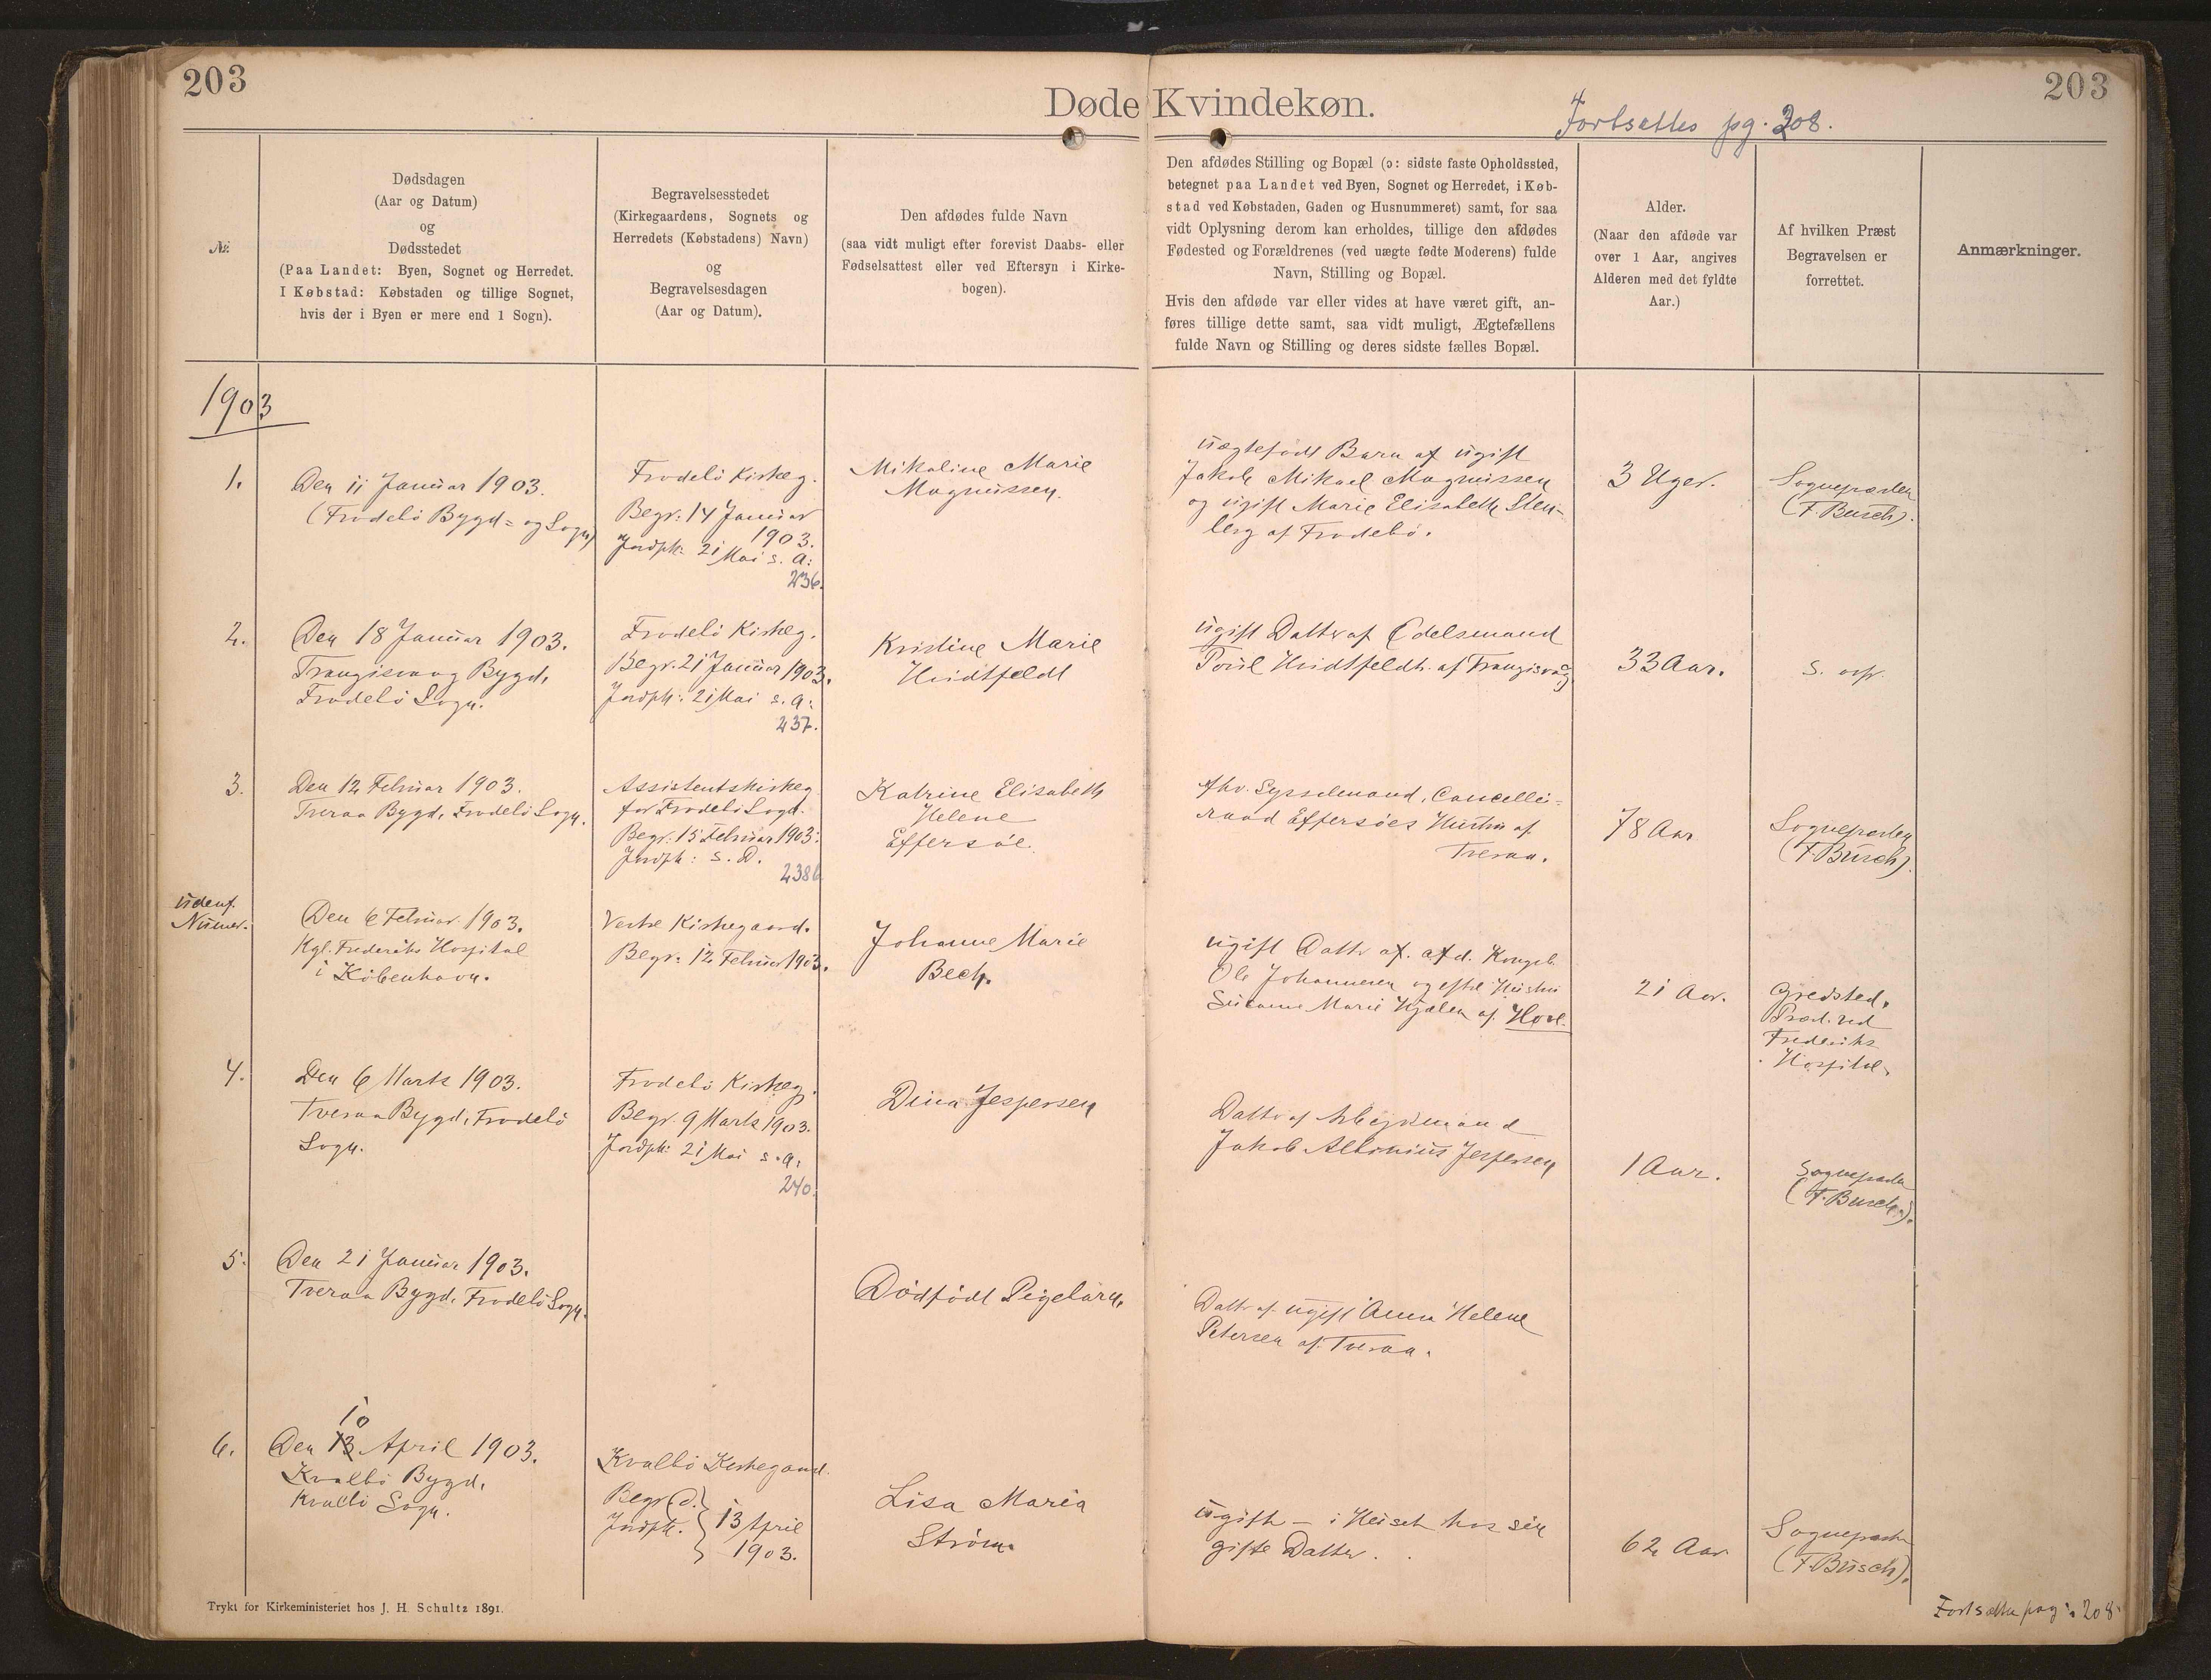 203
203
Døde Kvindekøn.
Fortsættes pg. 208.
№
Dødsdagen
(Aar og Datum)
og
Dødsstedet
(Paa Landet: Byen, Sognet og Herredet.
I Købstad: Købstaden og tillige Sognet,
hvis der i Byen er mere end 1 Sogn).
Begravelsesstedet
(Kirkegaardens, Sognets og
Herredets (Købstadens) Navn)
og
Begravelsesdagen
(Aar og Datum).
Den afdødes fulde Navn
(saa vidt muligt efter forevist Daabs- eller
Fødselsattest eller ved Eftersyn i Kirke-
bogen).
Den afdødes Stilling og Bopæl (ɔ: sidste faste Opholdssted,
betegnet paa Landet ved Byen, Sognet og Herredet, i Køb-
stad ved Købstaden, Gaden og Husnummeret) samt, for saa
vidt Oplysning derom kan erholdes, tillige den afdødes
Fødested og Forældrenes (ved uægte fødte Moderens) fulde
Navn, Stilling og Bopæl.
Hvis den afdøde var eller vides at have været gift, an-
føres tillige dette samt, saa vidt muligt, Ægtefællens
fulde Navn og Stilling og deres sidste fælles Bopæl.
Alder.
(Naar den afdøde var
over 1 Aar, angives
Alderen med det fyldte
Aar.)
Af hvilken Præst
Begravelsen er
forrettet.
Anmærkninger.
1903
1.
Den 11 Januar 1903.
(Frodebö Bygd= og Sogn)
Frodebö Kirkeg.
Begr: 14 Januar
1903.
Jordpk: 21 Mai s. A:
236.
Mikaline Marie
Magnussen.
uægtefödt Barn af ugift
Jakob Mikael Magnussen
og ugift Marie Elisabeth Sten-
berg af Frodebö.
3 Uger.
Sognepræsten
(F. Busch).
2.
Den 18 Januar 1903.
Trangisvaag Bygd,
Frodebö Sogn.
Frodebö Kirkeg.
Begr. 21 Januar 1903.
Jordpk: 21 Mai s. A:
237.
Kristine Marie
Hvidtfeldt
ugift Datter af Odelsmand
Poul Hvidtfeldt af Trangisvaag
33 Aar.
3.
Den 12 Februar 1903.
Tveraa Bygd, Frodebö Sogn.
Assistentskirkeg
for Frodebö Sogn.
Begr: 15 Februar 1903:
Jordpk: s. D.
238
Katrine Elisabeth
Helene
Effersöe.
fhv. Sysselmand, Cancelli=
raad Effersöes Hustru af
Tveraa.
78 Aar
Sognepræsten
(F. Busch).
udenf.
Numer.
Den 6 Februar 1903.
Kgl. Frederiks Hospital
i Köbenhavn.
Vestre Kirkegaard.
Begr: 12 Februar 1903.
Johanne Marie
Bech.
ugift Datter af afd. Kongsb.
Ole Johannesen og eftl. Hustru
Susanne Marie Kjölen af Hove.
21 Aar.
Gredsted,
Præst ved
Frederiks
Hospital.
4.
Den 6 Marts 1903.
Tveraa Bygd, Frodebö
Sogn.
Frodebö Kirkeg.
Begr. 9 Marts 1903.
Jordpk: 21 Mai s. A:
240.
Dina Jespersen
Datter af Arbejdsmand
Jakob Jespersen
1 Aar.
Sognepræsten
(F. Busch).
5.
Den 21 Januar 1903.
Tveraa Bygd, Frodebö Sogn.
Dödfödt Pigebarn.
Datter af ugift Anna Helene
Petersen af Tveraa.
6.
10
Den 13 April 1903.
Kvalbö Bygd,
Kvalbö Sogn.
Kvalbö Kirkegaard.
Begr. d.
Jordpk. } 13 April
1903.
Lisa Maria
Ström.
ugift - i Huset hos sin
gifte Datter.
62 Aar
Sognepræsten
(F. Busch).
Trykt for Kirkeministeriet hos J. H. Schultz 1891.
Fortsættes pag: 208